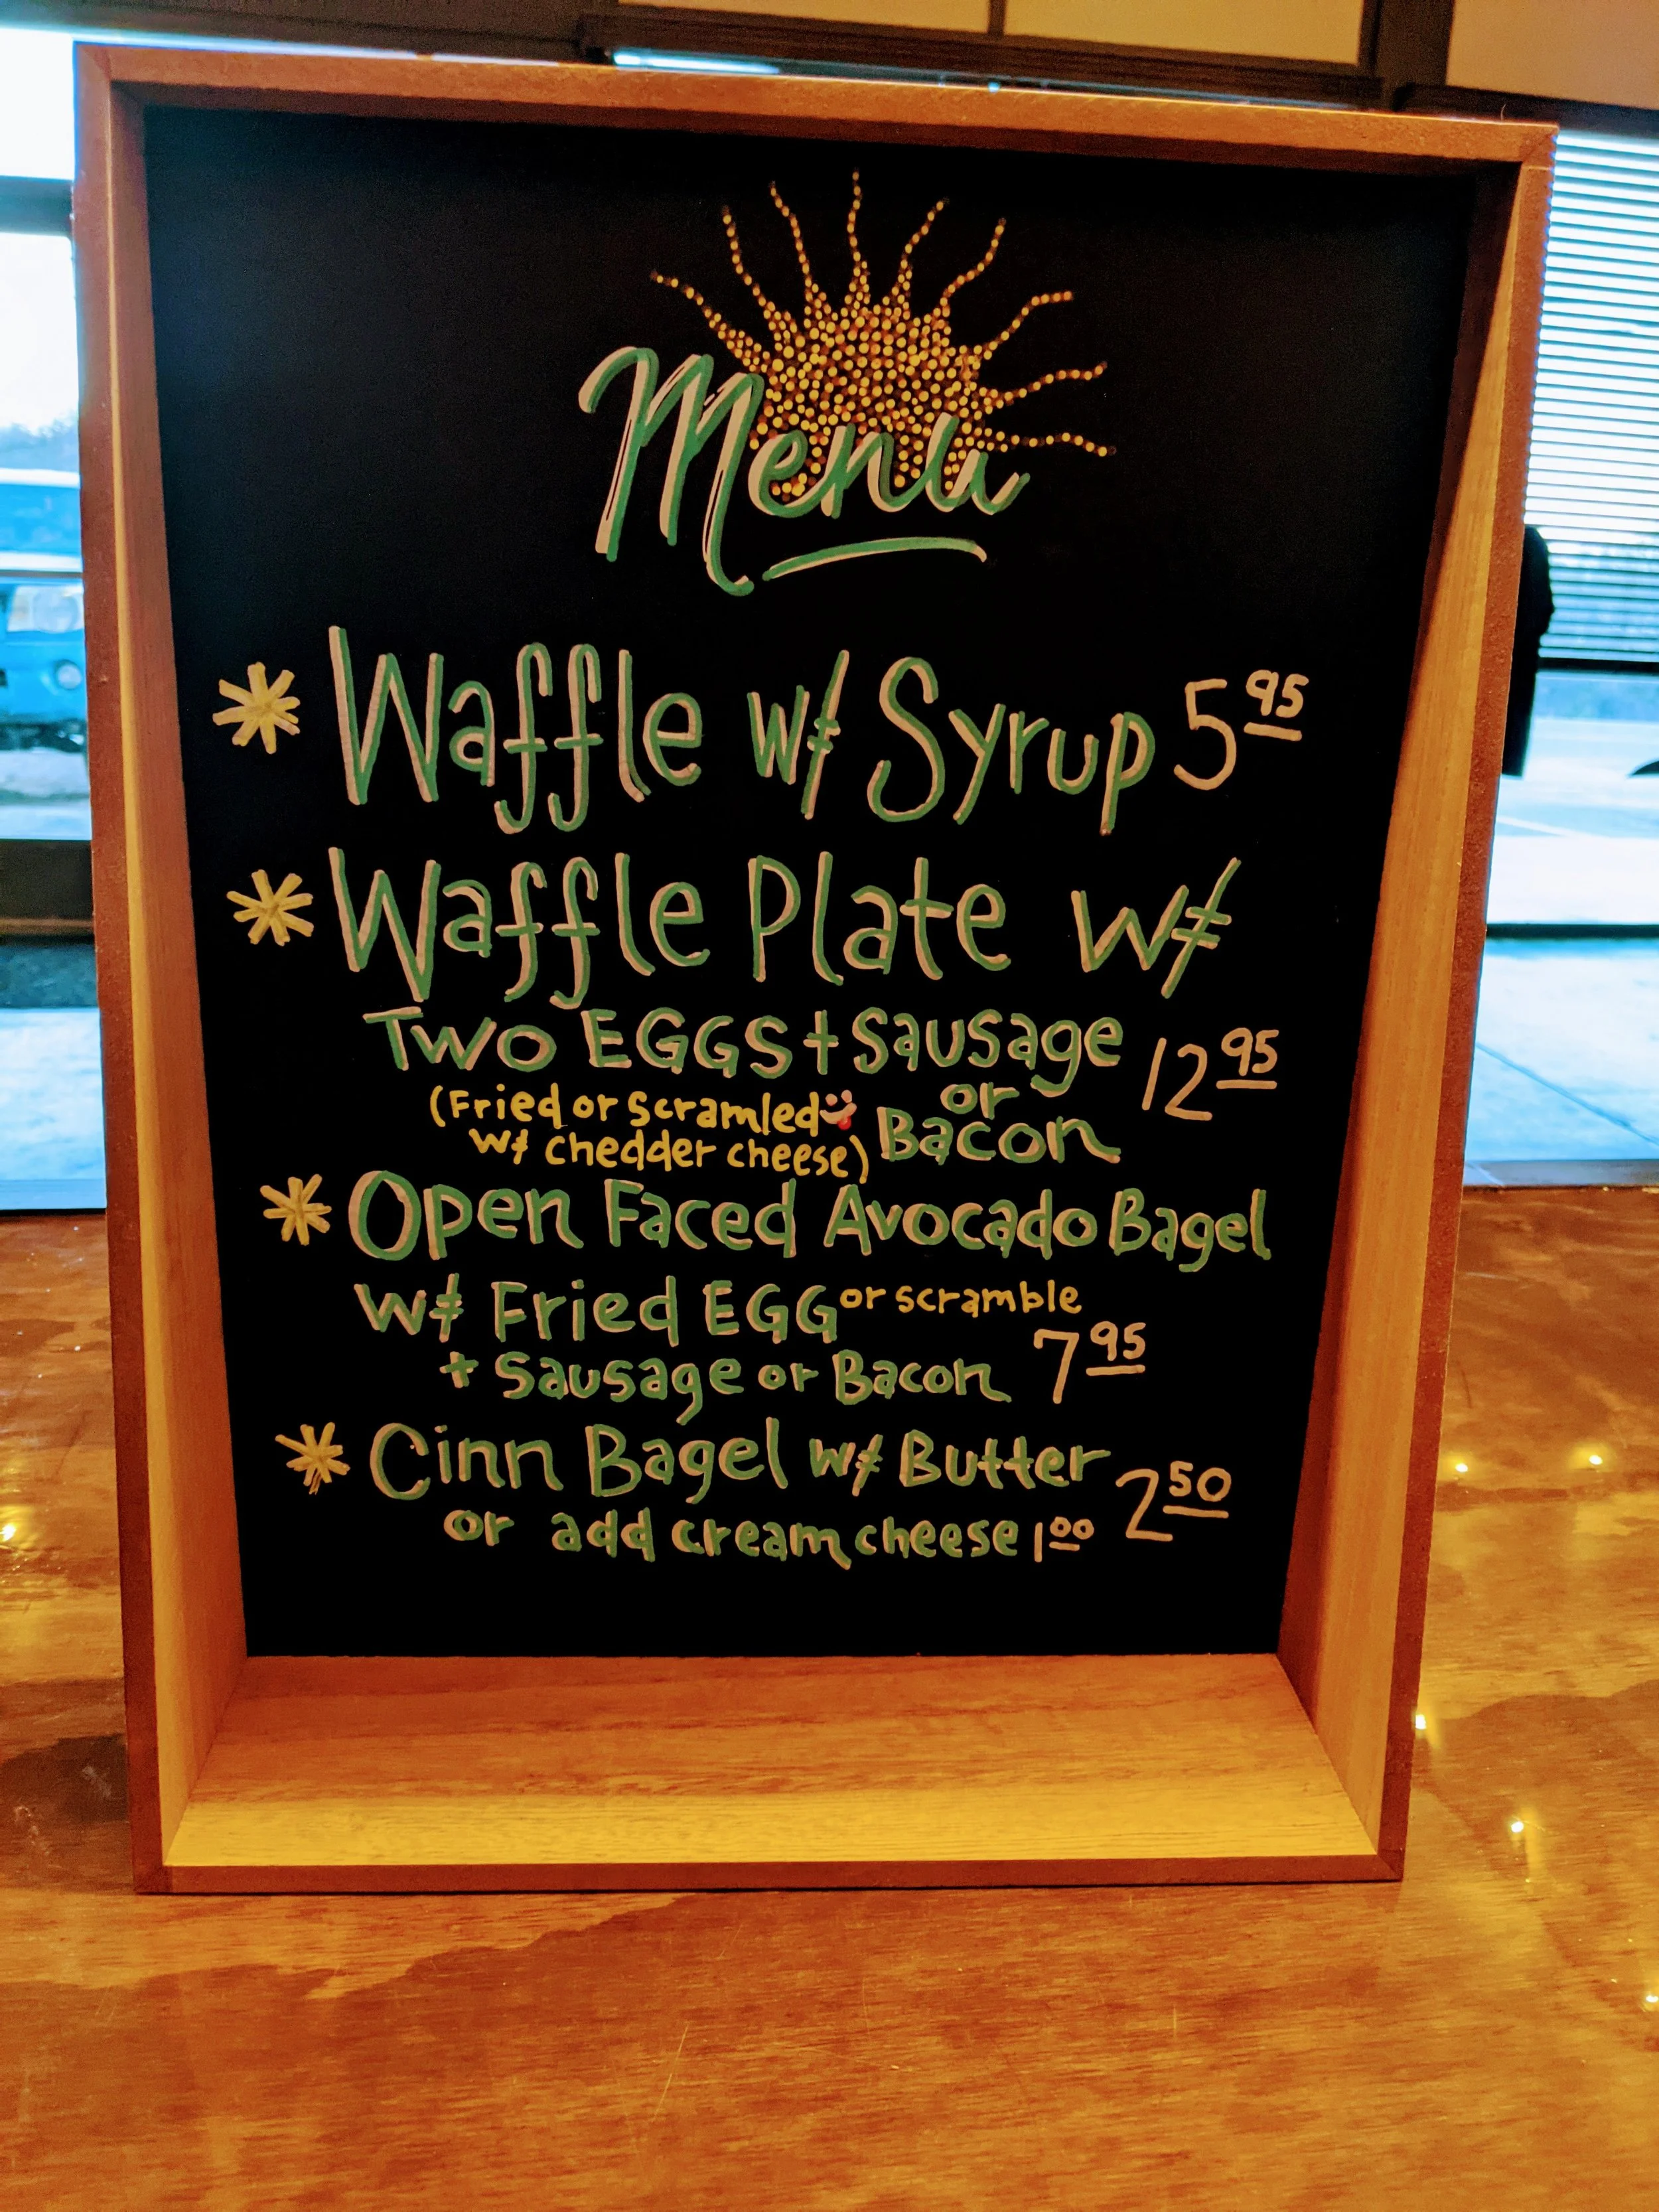 Menu
* Waffle w/ Syrup 5.95
* Waffle Plate w/
Two EGGS + Sausage 12.95
or
(Fried or Scramled
Bacon
w/ chedder cheese)
* Open Faced Avocado Bagel
w/ Fried EGG or scramble
+ Sausage or Bacon 7.95
* Cinn Bagel w/ Butter 2.50
or add cream cheese 1.00